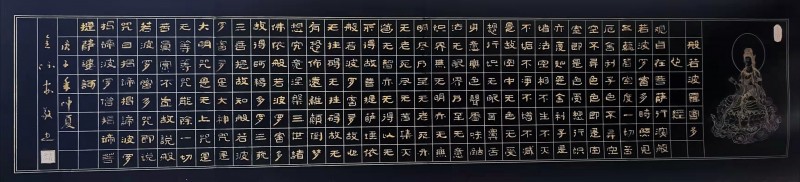 般若波羅蜜多
心經
觀自在菩薩行深般
若波羅蜜多時照見
五蘊皆空度一切苦
厄舍利子色不異空
空不異色色即是空
空即是色受想行識
亦復如是舍利子是
諸法空相不生不滅
不垢不淨不增不減
是故空中无色无受
想行識无眼耳鼻舌
身意无色聲香味觸
法无眼界乃至无意
識界无无明亦无无
明盡乃至无老死亦
无老死盡无苦集滅
道无智亦无得以无
所得故菩提薩埵依
般若波羅蜜多故心
无罣礙无罣礙故无
有恐怖遠離顛倒夢
想究竟涅槃三世諸
佛依般若波羅蜜多
故得阿耨多羅三藐
三菩提故知般若波
羅蜜多是大神咒是
大明咒是无上咒是
无等等咒能除一切
苦真實不虛故說般
若波羅蜜多咒即說
咒曰揭諦揭諦波羅
揭諦波羅僧揭諦菩
提薩婆訶
庚子年仲夏